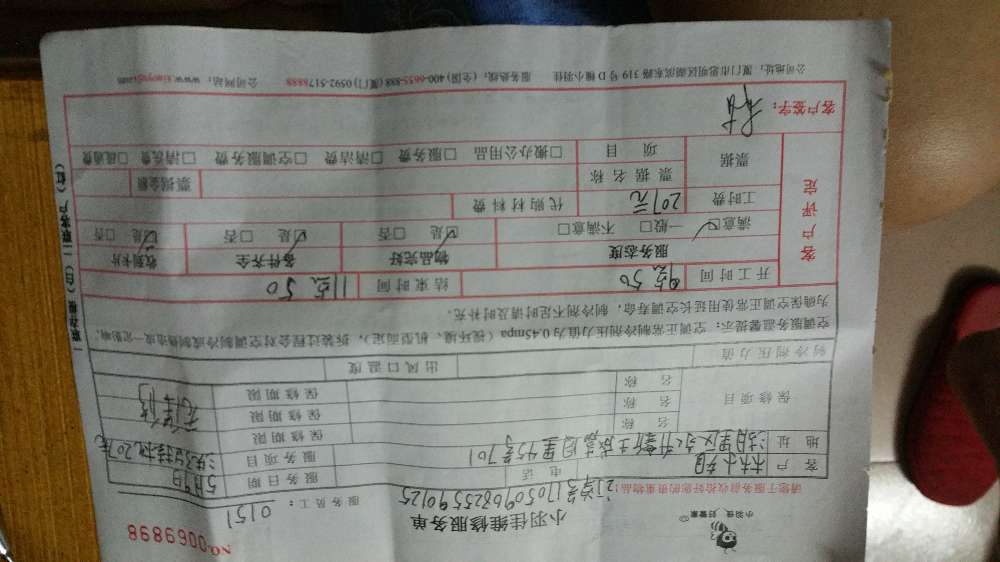 小羽佳，好管家
小羽佳维修服务单
NO. 0069898
订单号1705096825590125
服务员工：0151
请您于服务前收拾好您的贵重物品！
客户 林小姐 电话 服务日期 5月9日
地址 湖里区 嘉园里45号701 服务项目
保修项目 名称 保修期限
名称 保修期限 无保修
名称 保修期限
制冷剂压力值 出风口温度
空调服务温馨提示：空调正常制冷剂压力值为0.45mpa（视环境、机型而定），拆装过程会对空调制冷或制热造成一定影响，
为确保空调正常使用延长空调寿命，制冷剂不足时请及时补充。
客户评定
开工时间 9点50 结束时间 11点50
服务态度 物品完好 备件齐全 收到卡片
满意☑ 一般□ 不满意□ ☑是 □否 ☑是 □否 ☑是 □否
工时费 207元 代购材料费
票据 票据名称 票据金额
项目 □搬办公用品 □服务费 □清洁费 □空调服务费 □清洗费 □疏通费
客户签字：林
公司地址：厦门市思明区湖滨东路319号D幢小羽佳 服务热线：(全国)400-6655-888 (厦门)0592-5178888 公司网站：www.xiaoyujia.com
一联存根（白）二联客户（红）